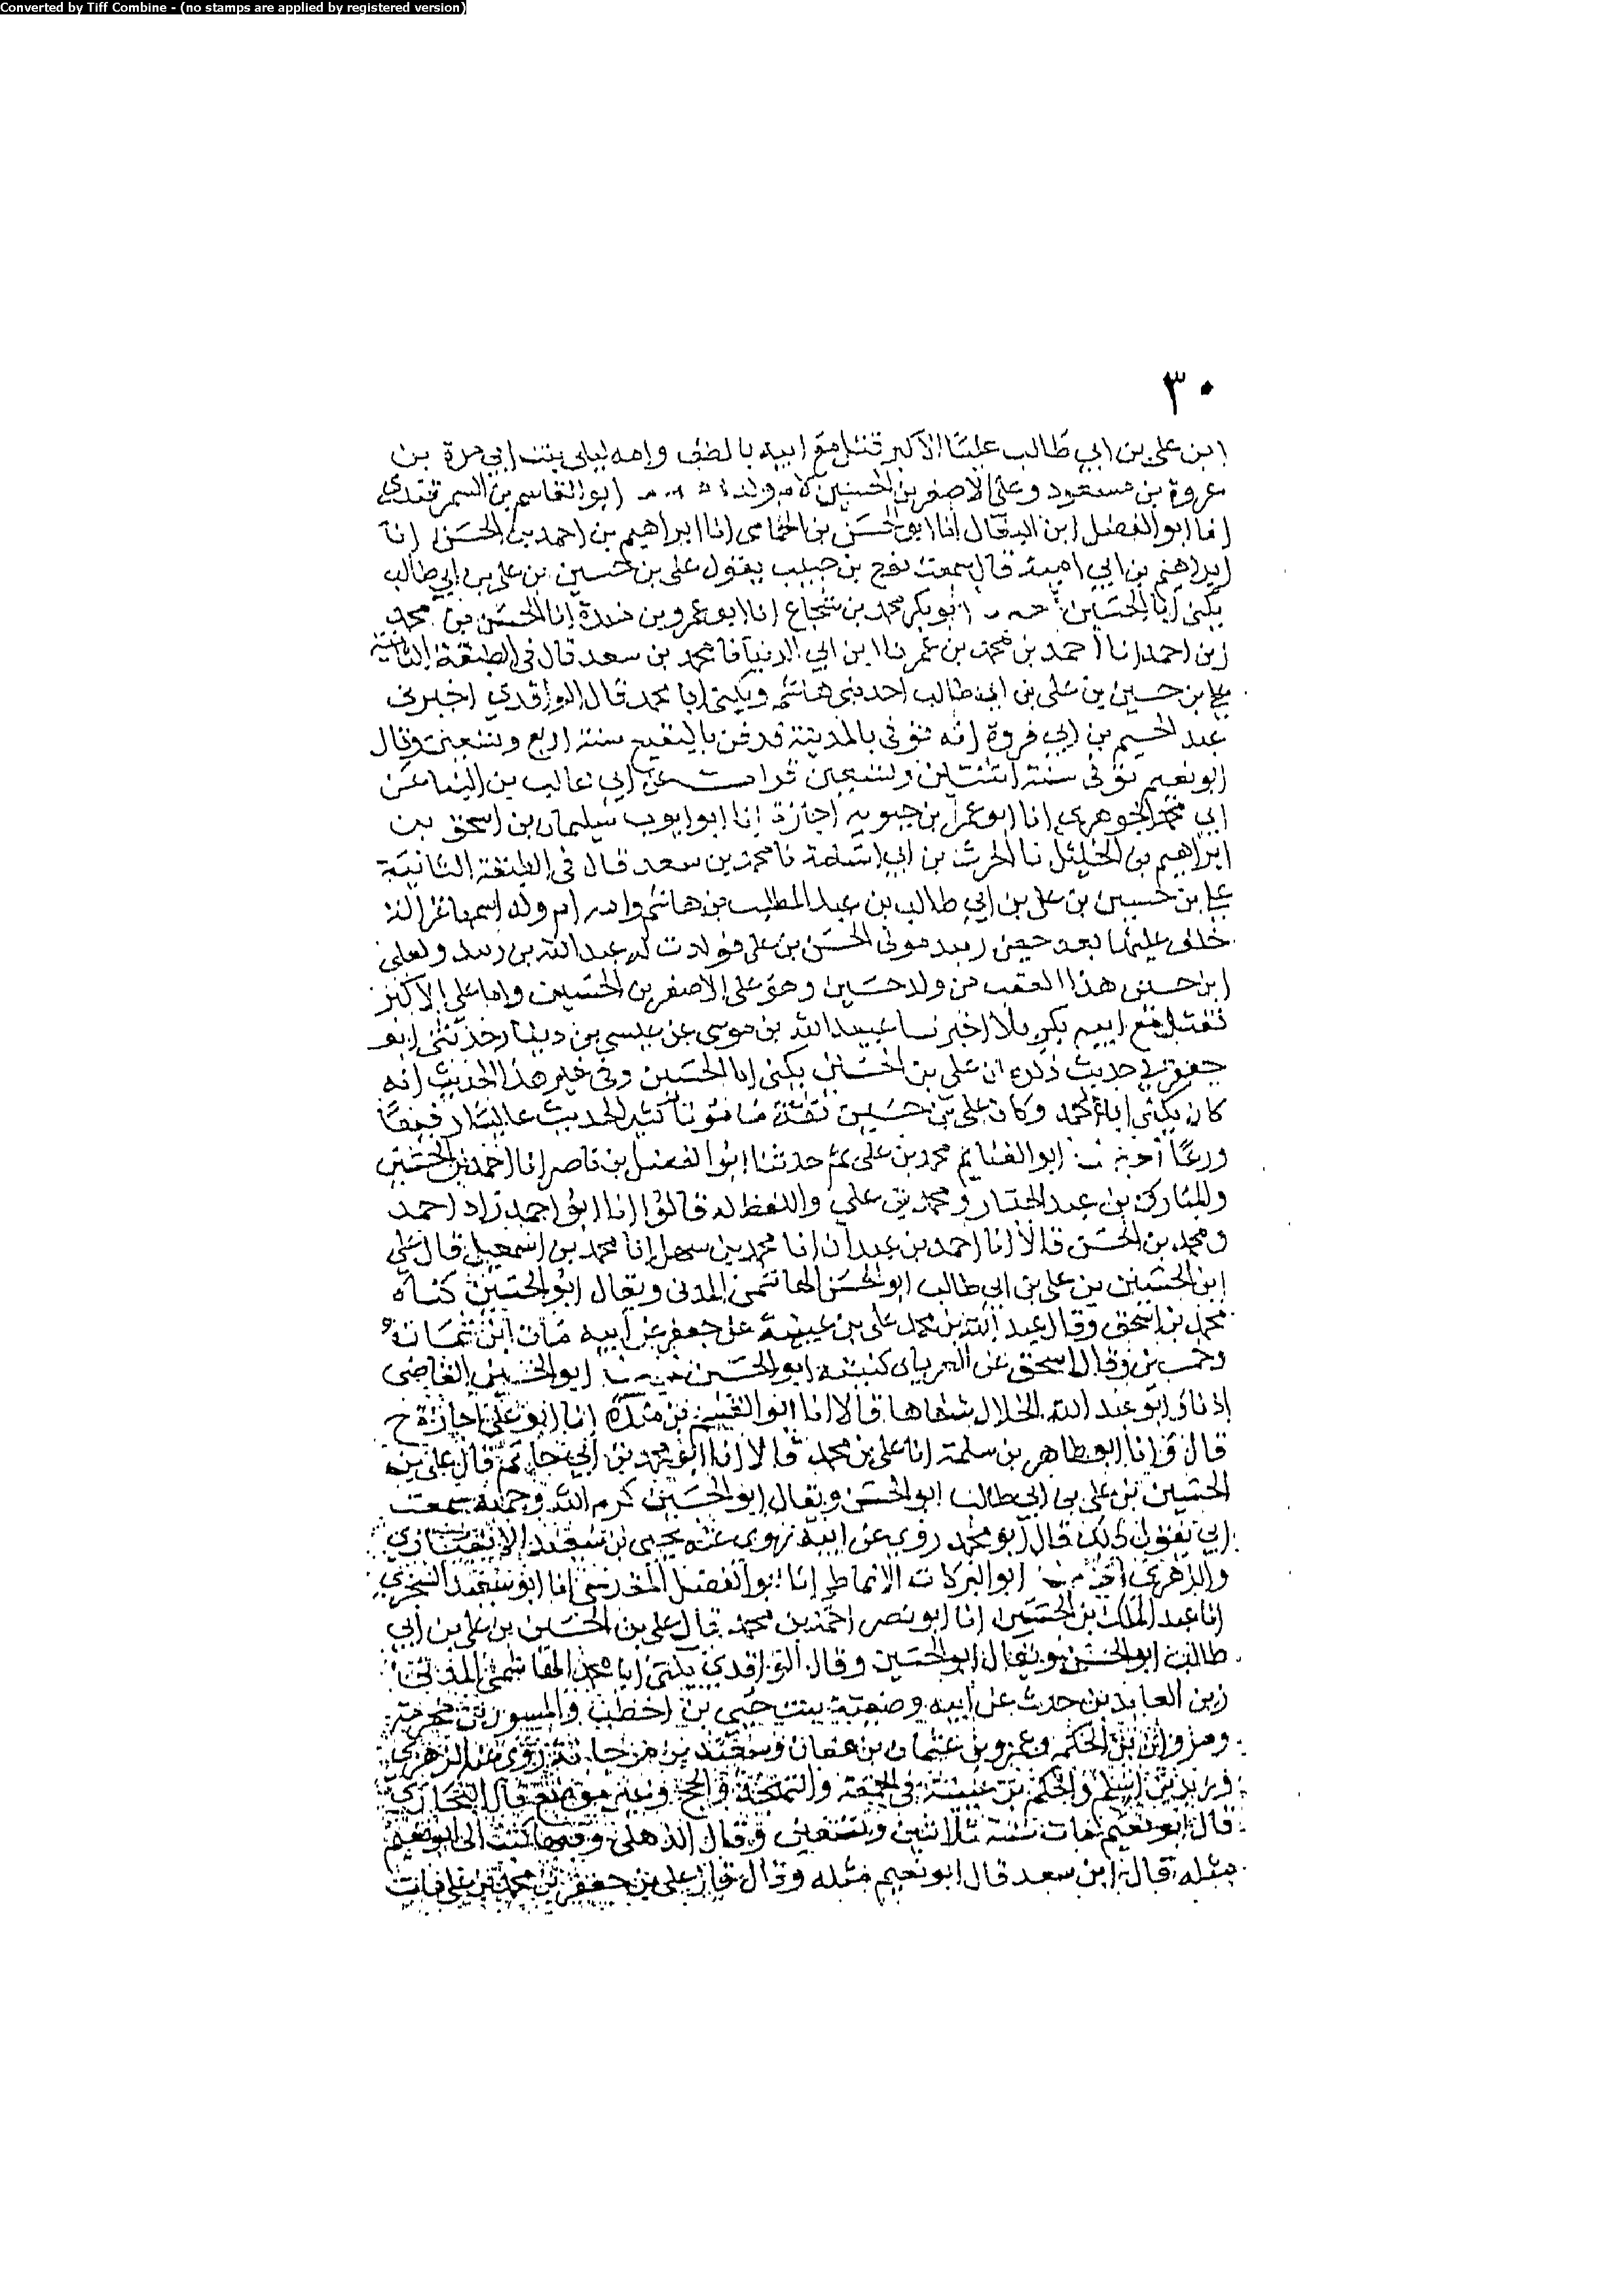 Converted by Tiff Combine - (no stamps are applied by registered version)
٣٠
ابن علي بن ابي طالب عليا الاكبر قتل مع ابيه بالطف وامه ليلى بنت ابي مرة بن
عروة بن مسعود وعلي الاصغر بن الحسين لام ولد ابو القاسم بن السمرقندي
انا ابو الفضل ابن البقال انا ابو الحسن بن الحمامي انا ابراهيم بن احمد بن الحسن انا
ابراهيم بن ابي امية قال سمعت نوح بن حبيب يقول علي بن حسين بن علي بن ابي طالب
يكنى ابا الحسين ابو بكر محمد بن شجاع انا ابو عمرو بن مندة انا الحسن بن محمد
بن احمد انا احمد بن محمد بن عمر نا ابن ابي الدنيا نا محمد بن سعد قال في الطبقة الثانية
علي بن حسين بن علي بن ابي طالب احد بني هاشم ويكنى ابا محمد قال الواقدي اخبرني
عبد الحكيم بن ابي فروة انه توفي بالمدينة فدفن بالبقيع سنة اربع وتسعين وقال
ابو نعيم توفي سنة اثنتين وتسعين قرات على ابي غالب بن البنا عن
ابي محمد الجوهري انا ابو عمر بن حيويه اجازة انا ابو ايوب سليمان بن اسحق بن
ابراهيم بن الخليل نا الحرث بن ابي اسامة نا محمد بن سعد قال في الطبقة الثانية
علي بن حسين بن علي بن ابي طالب بن عبد المطلب بن هاشم وامه ام ولد اسمها غزالة
خلف عليها بعد حسين زبيد مولى الحسين بن علي فولدت له عبد الله بن زبيد ولعلي
ابن حسين هذا العقب من ولد حسين وهو علي الاصغر بن الحسين واما علي الاكبر
فقتل مع ابيه بكربلا اخبرنا عبيد الله بن موسى عن عيسى بن دينار حدثني ابو
جعفر في حديث ذكره ان علي بن الحسين يكنى ابا الحسين وفي غير هذا الحديث انه
كان يكنى ابا محمد وكان علي بن حسين ثقة مامونا كثير الحديث عاليا رفيعا
ورعا ابو الغنايم محمد بن علي ثم حدثنا ابو الفضل بن ناصر انا احمد بن الحسين
والمبارك بن عبد الجبار ومحمد بن علي واللفظ له قالوا انا ابو احمد زاد احمد
ومحمد بن الحسن قالا انا احمد بن عبدان انا محمد بن سهل انا محمد بن اسمعيل قال علي
ابن الحسين بن علي بن ابي طالب ابو الحسن الهاشمي المدني ويقال ابو الحسين كناه
محمد بن اسحق وقال عبد الله بن محمد علي بن عيينة عن جعفر عن ابيه مات ابن ثمان
وخمسين وقال اسحق عن كنيته ابو الحسين ابو الحسين القاضي
اذنا وابو عبد الله الخلال شفاها قالا انا ابو القسم بن مندة انا ابو علي اجازة ح
قال وانا ابو طاهر بن سلمة انا علي بن محمد قالا انا ابو محمد بن ابي حاتم قال علي بن
الحسين بن علي بن ابي طالب ابو الحسن ويقال ابو الحسين كرم الله وجهه سمعت
ابي يقول ذلك قال ابو محمد روى عن ابيه روى عنه يحيى بن سعيد الانصاري
والزهري ابو البركات الانماطي انا ابو الفضل المقدسي انا ابو سعيد السجزي
انا عبد الملك بن الحسين انا ابو نصر احمد بن محمد قال علي بن الحسين بن علي بن ابي
طالب ابو الحسن ويقال ابو الحسين وقال الواقدي يكنى ابا محمد الهاشمي المدني
زين العابدين حدث عن ابيه وصفية بنت حيي بن اخطب والمسور بن مخرمة
ومروان بن الحكم وعمرو بن عثمان بن عفان وسعيد بن مرجانة روى عنه الزهري
وزيد بن اسلم والحكم بن عتيبة في الجمعة والتهجد والحج وغير موضع قال البخاري
قال ابو نعيم مات سنة وتسعين وقال الذهلي وفيما كتب الي ابو نعيم
مثله قال ابن سعد قال ابو نعيم مثله وقال قال علي بن جعفر بن محمد بن علي مات